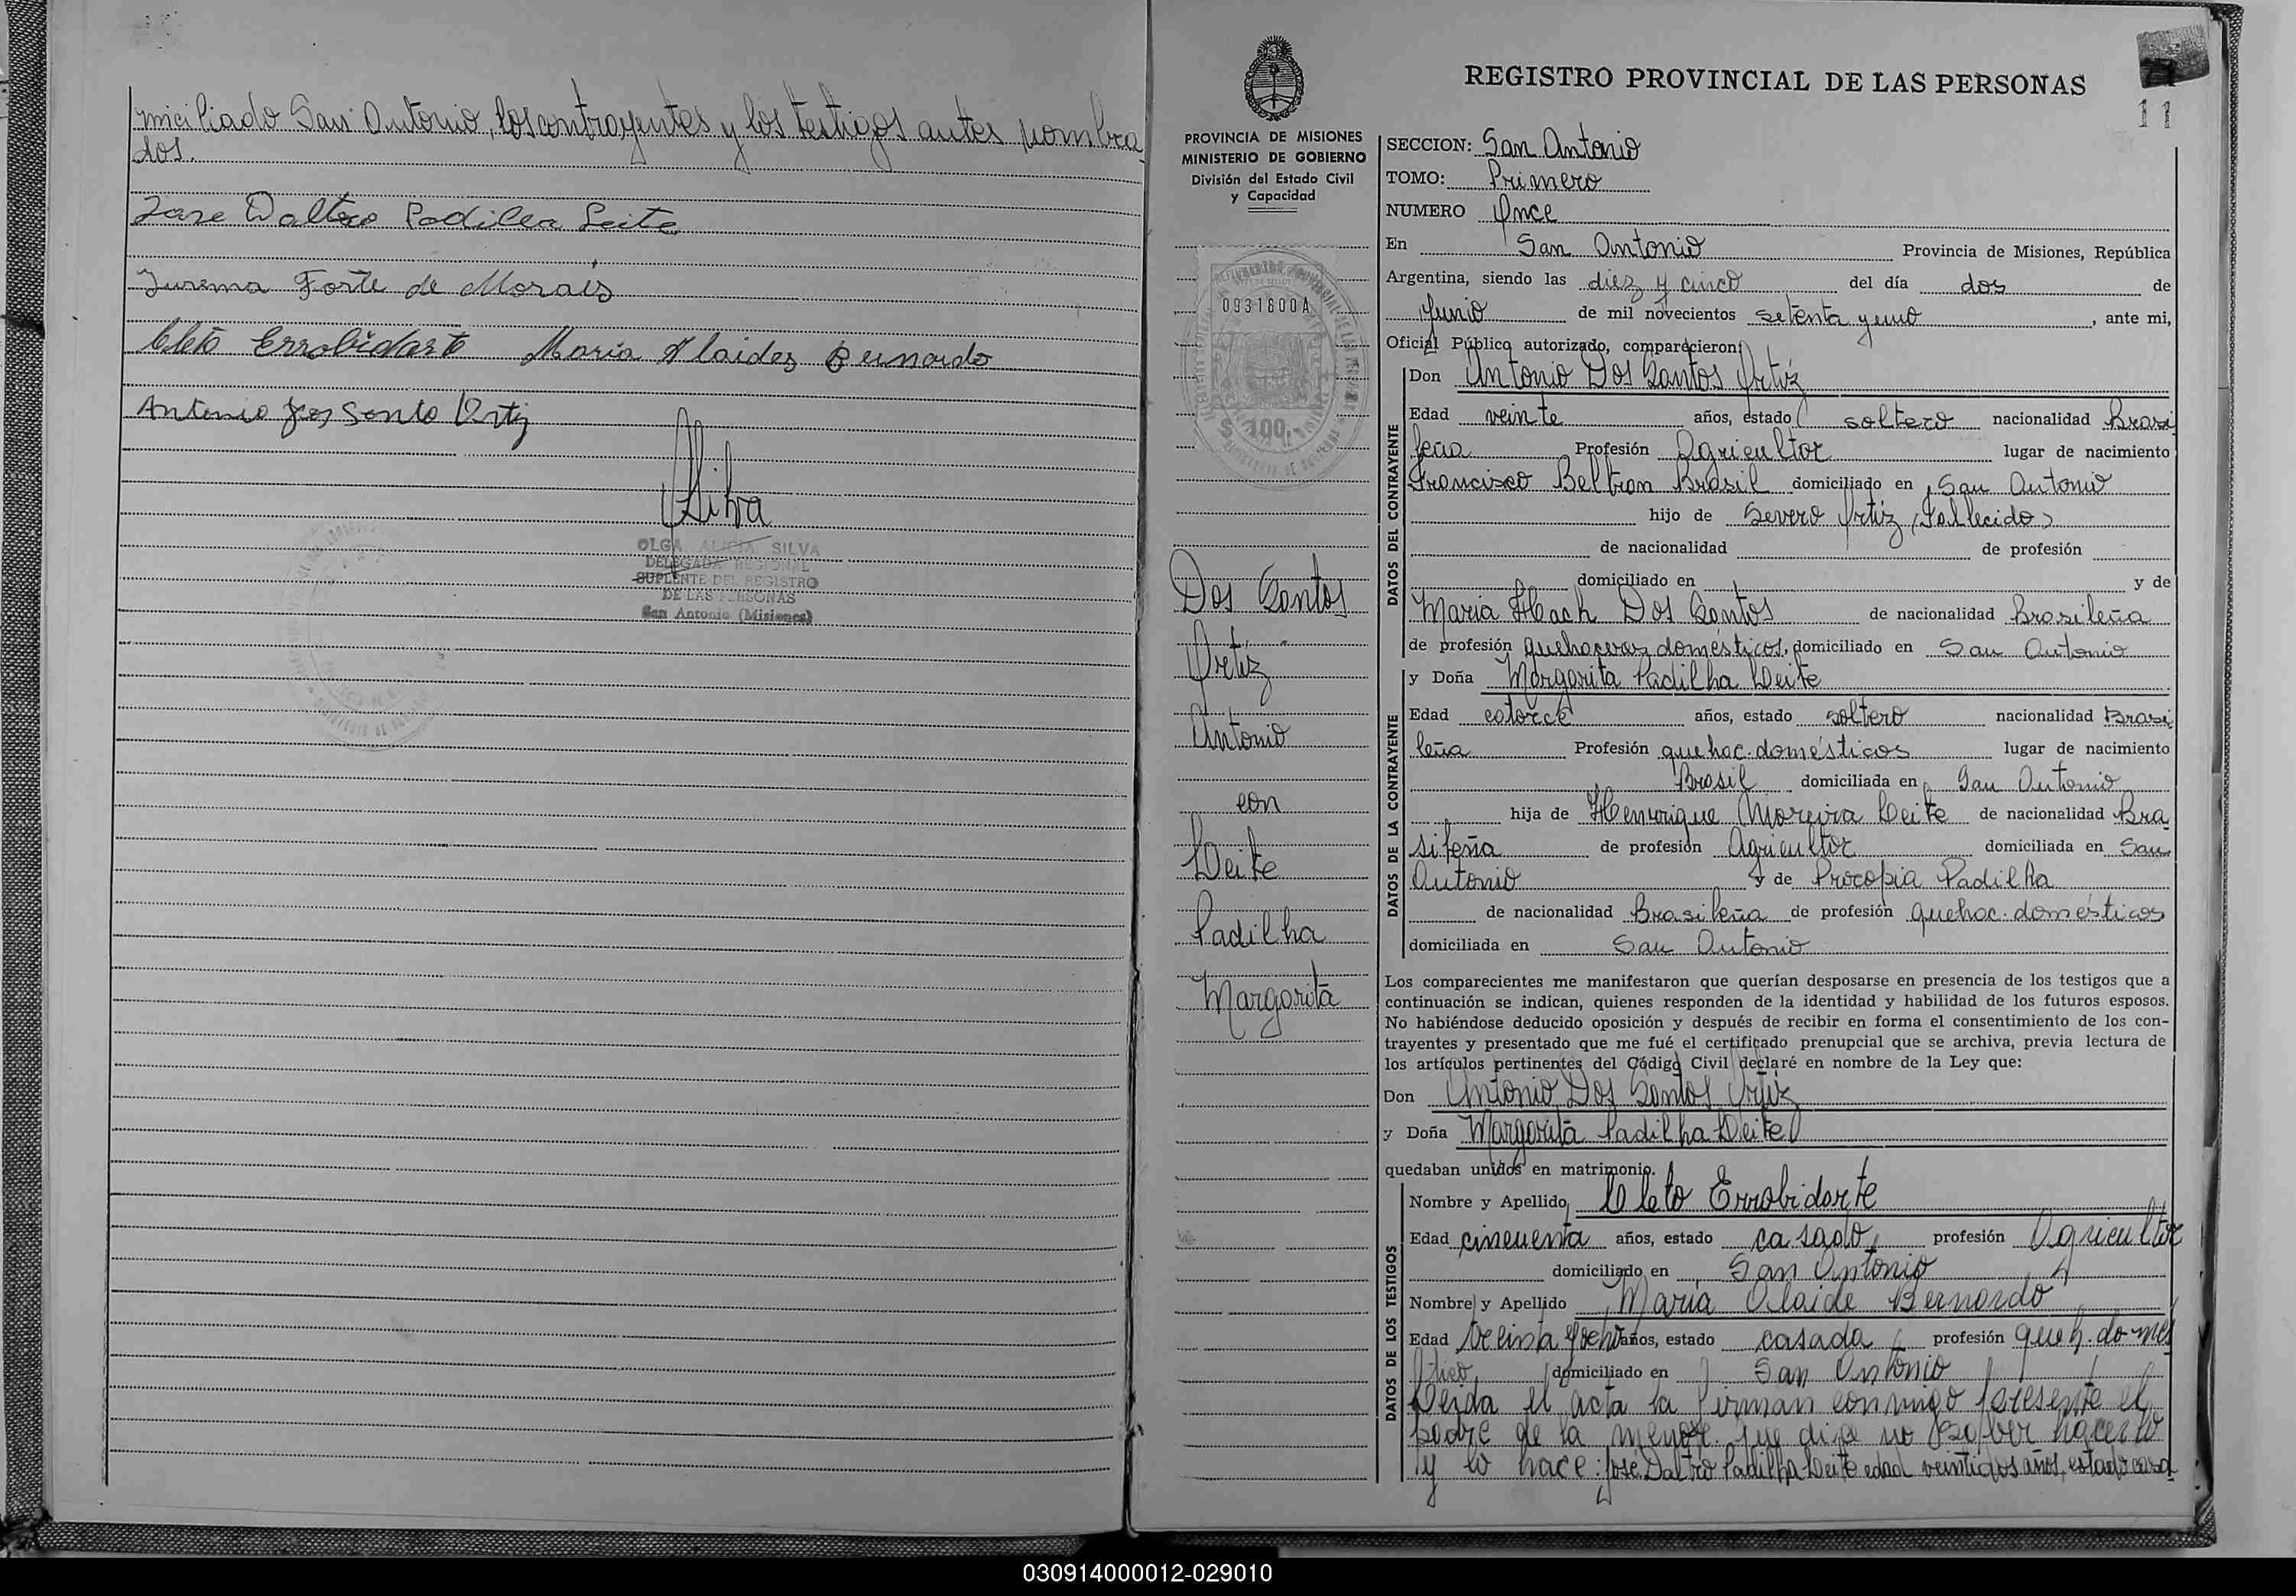 miciliado San Antonio, los contrayentes y los testigos antes nombra
dos.
Jose Daltro Padilha Leite
Jurema Forte de Morais
Cleto Errobidarte Maria Alaides Bernardo
Antonio dos Santo Ortiz
Silva
OLGA ALICIA SILVA
DELEGADA REGIONAL
SUPLENTE DEL REGISTRO
DE LAS PERSONAS
San Antonio (Misiones)
REGISTRO PROVINCIAL DE LAS PERSONAS
11
PROVINCIA DE MISIONES
MINISTERIO DE GOBIERNO
División del Estado Civil
y Capacidad
0931800A
$ 100,
Dos Santos
Ortíz
Antonio
con
Leite
Padilha
Margarita
SECCION: San Antonio
TOMO: Primero
NUMERO Once
En San Antonio Provincia de Misiones, República
Argentina, siendo las diez y cinco del día dos de
Junio de mil novecientos setenta y uno, ante mi,
Oficial Público autorizado, comparecieron:
DATOS DEL CONTRAYENTE
Don Antonio Dos Santos Ortíz
Edad veinte años, estado soltero nacionalidad Brasi
leña Profesión Agricultor lugar de nacimiento
Francisco Beltran Brasil domiciliado en San Antonio
hijo de Severo Ortiz (Fallecido)
de nacionalidad de profesión
domiciliado en y de
Maria Hach Dos Santos de nacionalidad Brasileña
de profesión quehaceres domésticos, domiciliado en San Antonio
DATOS DE LA CONTRAYENTE
y Doña Margarita Padilha Leite
Edad catorce años, estado soltero nacionalidad Brasi
leña Profesión quehac. domésticos lugar de nacimiento
Brasil domiciliada en San Antonio
hija de Henrique Moreira Leite de nacionalidad Bra
sileña de profesión Agricultor domiciliada en San
Antonio y de Procopia Padilha
de nacionalidad Brasileña de profesión quehac. domésticos
domiciliada en San Antonio
Los comparecientes me manifestaron que querían desposarse en presencia de los testigos que a
continuación se indican, quienes responden de la identidad y habilidad de los futuros esposos.
No habiéndose deducido oposición y después de recibir en forma el consentimiento de los con-
trayentes y presentado que me fué el certificado prenupcial que se archiva, previa lectura de
los artículos pertinentes del Código Civil declaré en nombre de la Ley que:
Don Antonio Dos Santos Ortíz
y Doña Margarita Padilha Leite
quedaban unidos en matrimonio.
DATOS DE LOS TESTIGOS
Nombre y Apellido Cleto Errobidarte
Edad cincuenta años, estado casado, profesión Agricultor
domiciliado en San Antonio
Nombre y Apellido Maria Olaide Bernardo
Edad treinta y ocho años, estado casada profesión queh. domés
tico, domiciliado en San Antonio
Leida el acta la firman conmigo presente el
padre de la menor que dijo no saber hacerlo
y lo hace: José Daltro Padilha Leite edad veintidos años, estado casad
030914000012-029010